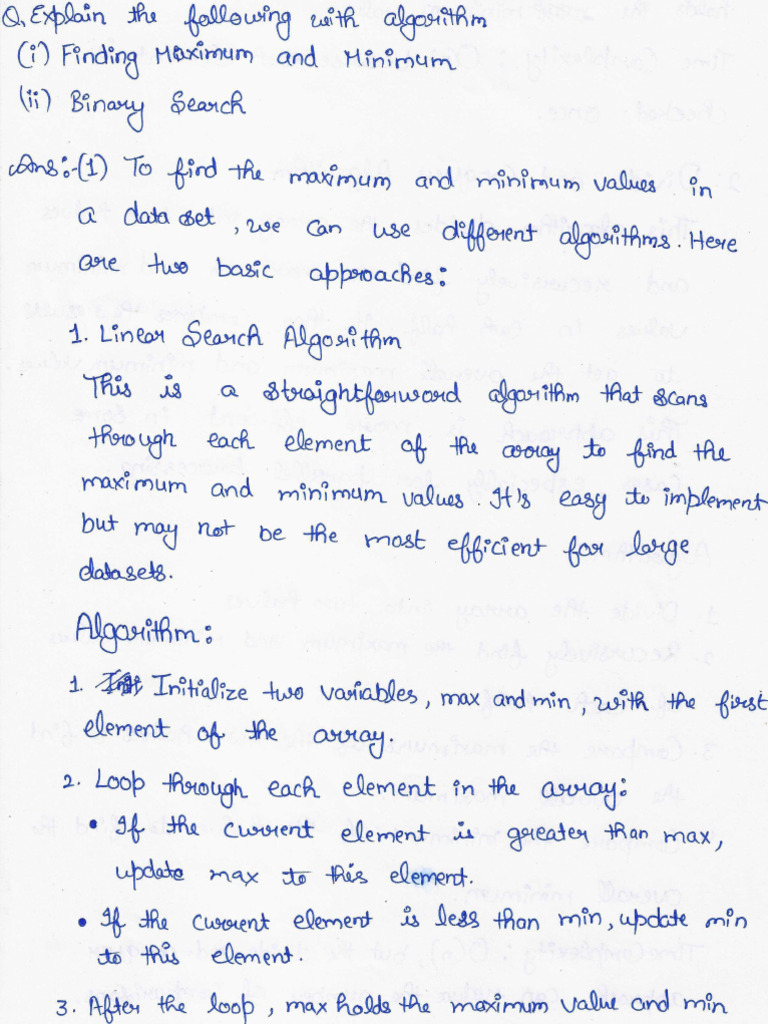 Q. Explain the following with algorithm
(i) Finding Maximum and Minimum
(ii) Binary Search
Ans:-(1) To find the maximum and minimum values in
a data set, we can use different algorithms. Here
are two basic approaches:
1. Linear Search Algorithm
This is a straightforward algorithm that scans
through each element of the array to find the
maximum and minimum values. It's easy to implement
but may not be the most efficient for large
datasets.
Algorithm:
1. Initialize two variables, max and min, with the first
element of the array.
2. Loop through each element in the array:
• If the current element is greater than max,
update max to this element.
• If the current element is less than min, update min
to this element.
3. After the loop, max holds the maximum value and min